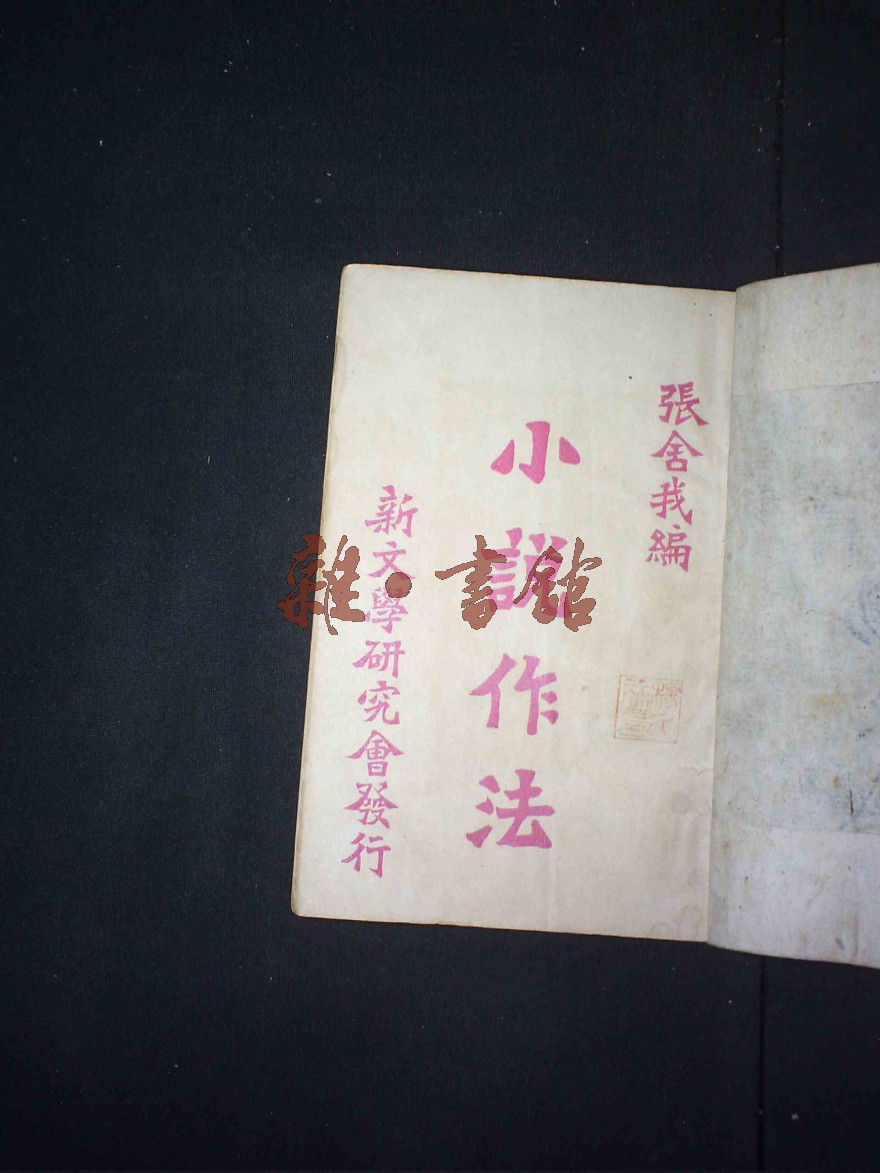 張舍我編
小說作法
新文學研究會發行
雜·書館